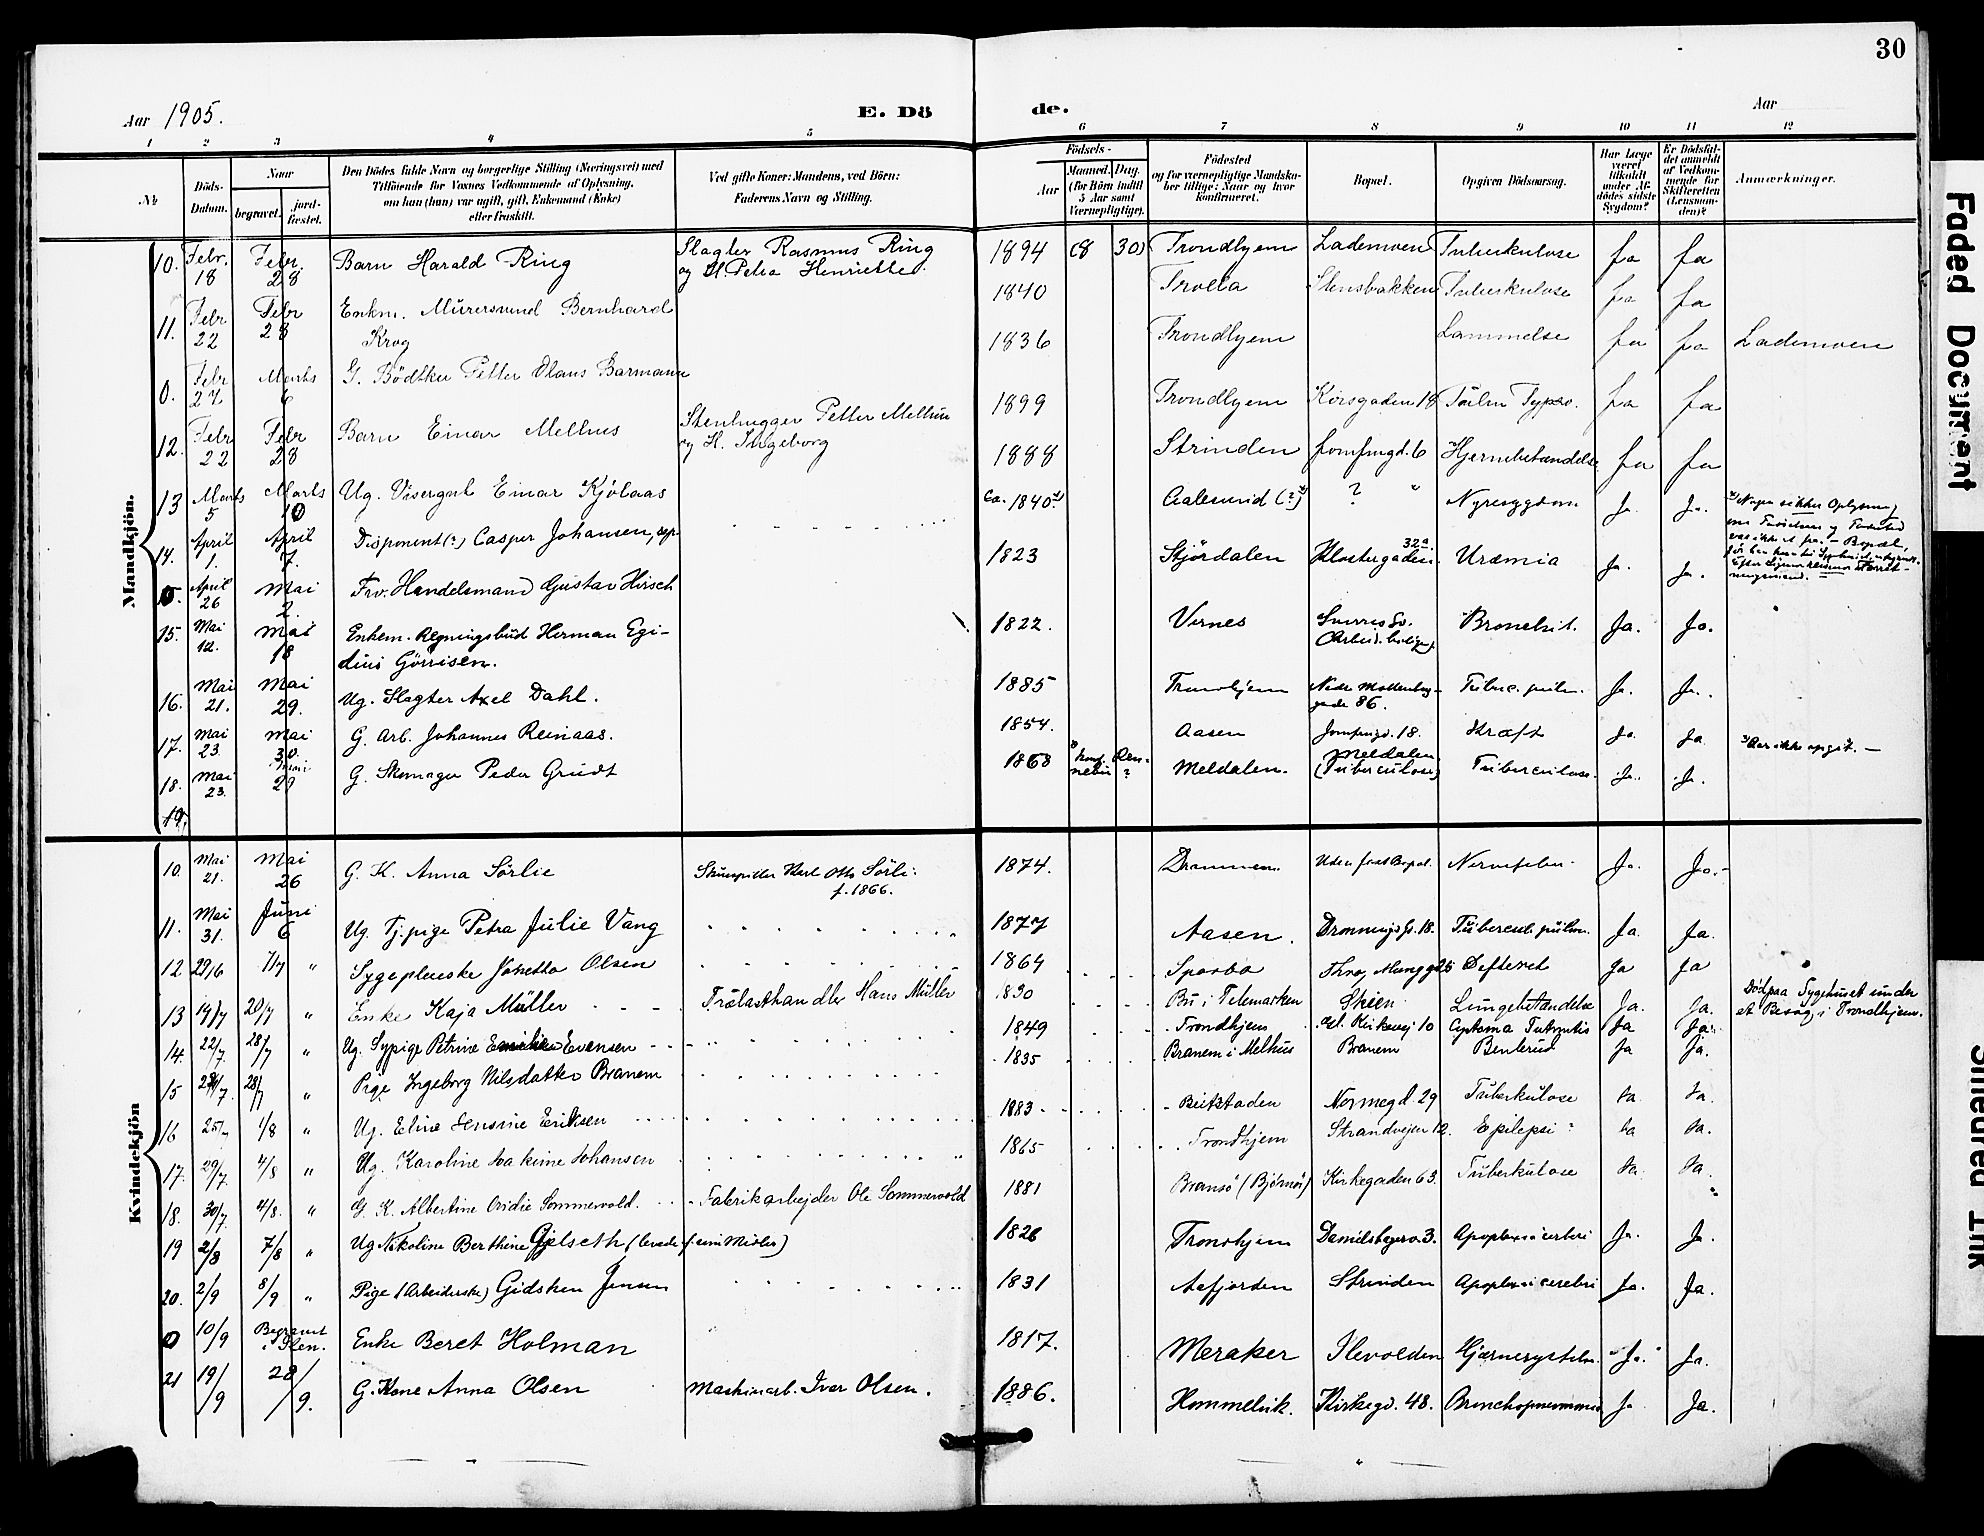 30
Aar 1905.
E. Dö
de.
Aar
1 2 3 4 5 6 7 8 9 10 11 12
№
Döds-Datum.
Naar
begravet.
jord-fæstet.
Den Dödes fulde Navn og borgerlige Stilling (Næringsvei) med
Tilföiende for Voxnes Vedkommende af Oplysning,
om han (hun) var ugift, gift, Enkemand (Enke)
eller fraskilt.
Ved gifte Koner: Mandens, ved Börn:
Faderens Navn og Stilling.
Födsels-
Aar
Maaned. Dag.
(for Börn indtil
5 Aar samt
Værnepligtige).
Födested
og for værnepligtige Mandska-
ber tillige: Naar og hvor
konfirmeret.
Bopæl.
Opgiven Dödsaarsag.
Har Læge
været
tilkaldt
under Af-
dödes sidste
Sygdom?
Er Dödsfal-
det anmeldt
af Vedkom-
mende for
Skifteretten
(Lensman-
den)?
Anmærkninger.
Mandkjön.
10. Febr. 18 Febr. 28 Barn Harald Ring Slagter Rasmus Ring og H. Petra Henriette. 1894 (8 30) Trondhjem Lademoen Tuberkulose ja ja
11. Febr 22 Febr 28 Enkm. Murersvend Bernhard Krog 1840 Trolla Stensbakken Tuberkulose ja ja
0. Febr 27 Marts 6 G. Bödtker Petter Olaus Barmann 1836 Trondhjem Lammelse ja ja Lademoen
12. Febr 22 Febr 28 Barn Einar Melhus Stenhugger Petter Melhus og H. Ingeborg 1899 Trondhjem Korsgaden 18 ja ja
13 Marts 5 Marts 10 Ug. Visergut Einar Kjölaas 1888 Strinden Jomfrugd. 6 Hjernebetændelse ja ja
14. April 1. April 7. Disponent(?) Casper Johansen, sep. ca. 1840 Aalesund (?) ? " Nyresygdom Ja. Ja.
0. April 26 Mai 2. Frv. Handelsmand Gustav Hirsch 1823 Stjördalen Klostergaden 32a Uræmia Ja. Ja.
15. Mai 12. Mai 18 Enkem. Regningsbud Herman Egi-
dius Görrisen. 1822. Vernes Bronchit. Ja. Ja.
16. Mai 21. Mai 29. Ug. Slagter Axel Dahl. 1885 Trondhjem Nedre Møllenberg-gade 86. Tuberc. pulm. Ja. Ja.
17. Mai 23. Mai 30. G. Arb. Johannes Reinaas. 1854. Aasen Jomfrugd. 18. Kræft Ja. Ja
18. Mai 23. Mai 29 G. Skomager Peder Grudt 1868 Meldalen. Meldalen (Tuberculose) Tuberculose. Ja. Ja. Aar ikke opgit. —
19.
Kvindekjön
10. Mai 21. Mai 26 G. K. Anna Sörlie Skuespiller Karl Otto Sörli: f. 1866. 1874. Drammen Uden fast Bopæl. Nervefeber. Ja. Ja.
11. Mai 31. Juni 6 Ug. Tj.pige Petra Julie Vang 1877 Aasen. Dronningsg. 18. Tubercul. pulm. Ja. Ja.
12 29/6 7/7 " Sygepleierske Jonetta Olsen 1864 Sparbo Thro, Munggd 25 Defteret Ja Ja
13 14/7 20/7 " Enke Kaja Müller Trælasthandler Hans Müller 1830 Bö i Telemarken Skien Lungebetændelse Ja. Ja. Död paa Sygehuset under et Besøg i Trondhjem.
14. 22/7 28/7 " Ug. Sypige Petrine Emilie Evensen 1849 Trondhjem Gl. Kirkevej 10 Ja Ja
15 24/7. 28/7 " Pige Ingeborg Nilsdatter Branem 1835 Branem i Melhus Branem Benbrud Ja Ja.
16 25/7 1/8 " Ug. Eline Jensine Eriksen 1883 Beitstaden Normegd. 29 Tuberkulose Ja. Ja.
17. 29/7. 4/8 " Ug. Karoline Joakime Johansen 1865 Trondhjem Strandvejen 12. Epilepsi Ja Ja.
18. 30/7. 4/8. " G. K. Albertine Ovidie Sommervold. Fabrikarbejder Ole Sommervold 1881 Bransö (Björnör) Kirkegaden 63. Tuberkulose Ja. Ja.
19 2/8 7/8 " Ug Nikoline Berthine Gjelseth (levede f. sine Midler) 1826 Trondhjem Danielsbagerv. 3. Apoplexia cerebri Ja. Ja.
20. 2/9 8/9 " Pige (Arbeiderske) Gidsken Jensen 1831 Aafjorden Strinden Apoplexia cerebri Ja. Ja.
0 10/9 Begravet i Ilen. Enke Beret Holman 1817. Meraker Ilevolden Ja. Ja.
21 19/9 28/9. G. Kone Anna Olsen Maskinarb. Iver Olsen. 1886. Hommelvik. Kirkegd. 48. Bronchopneumonia Ja Ja.
Faded Document
Smeared Ink